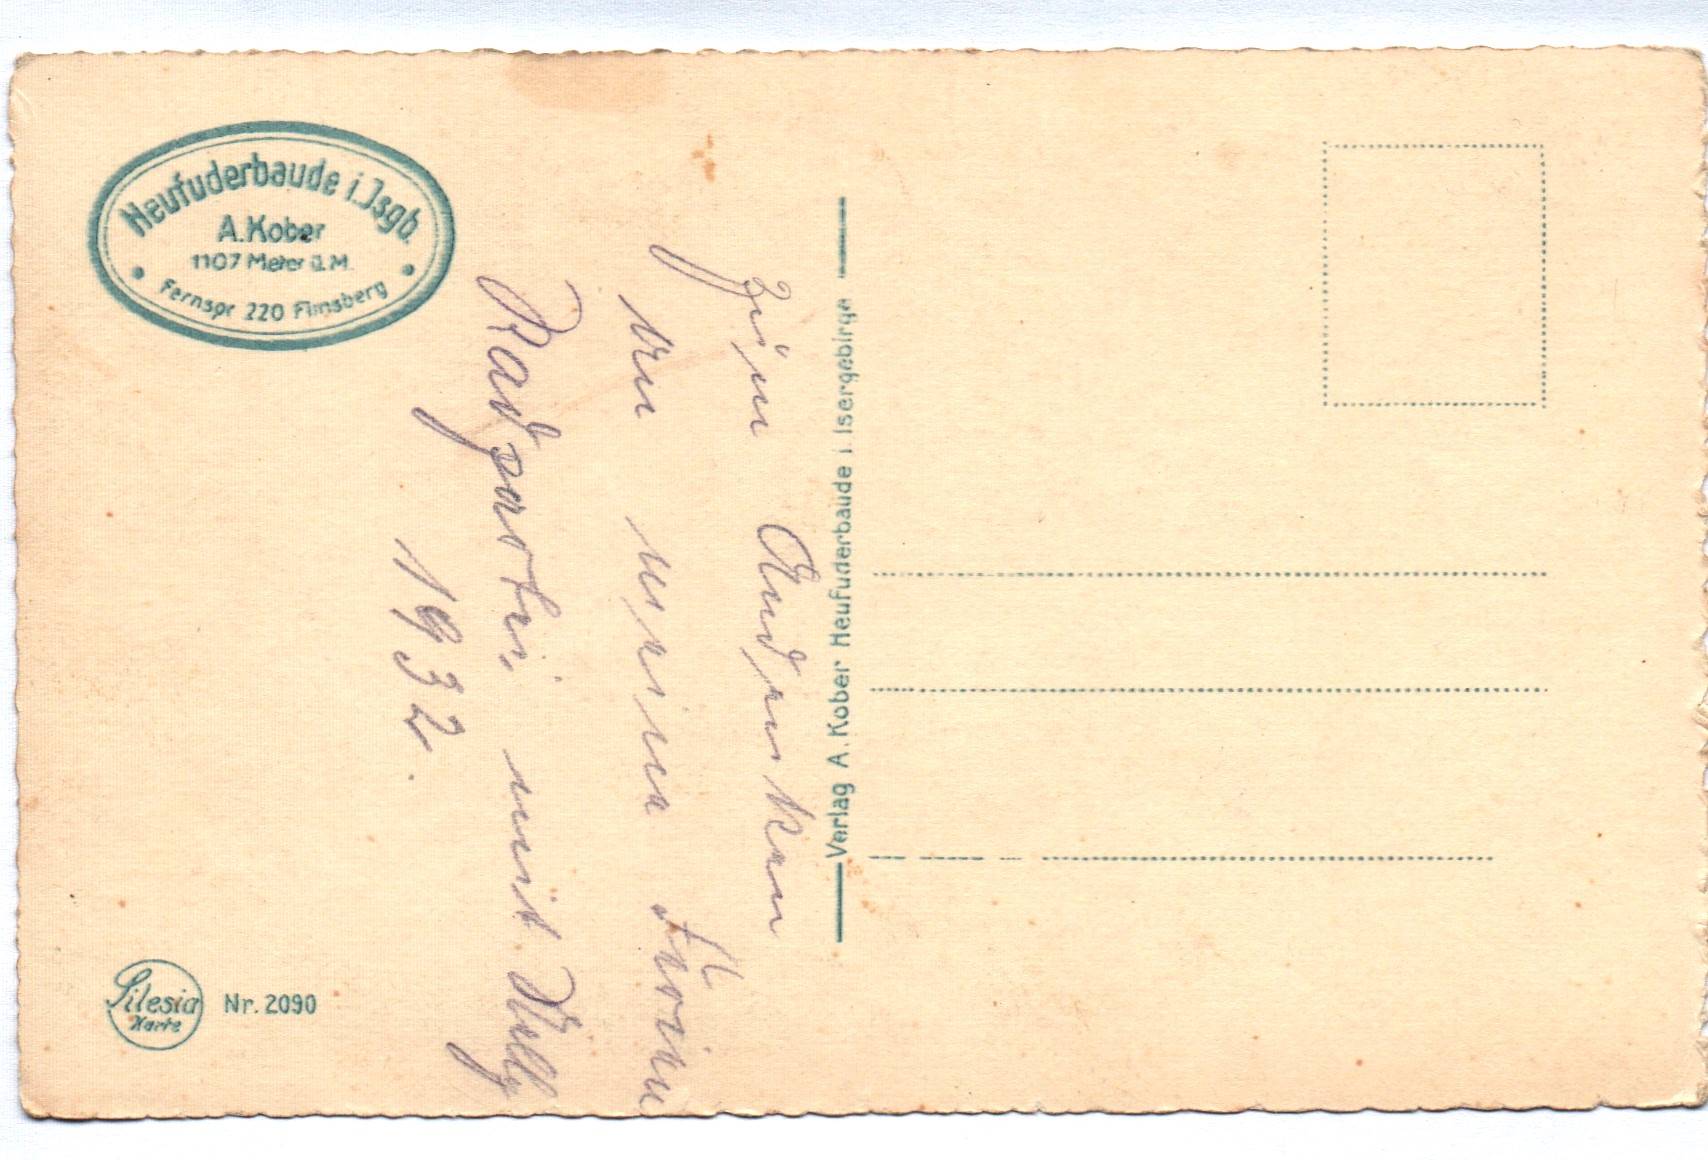 Heufuderbaude i. Isgb.
A. Kober
1107 Meter ü. M.
Fernspr 220 Flinsberg
Zum Andenken
an meine Ferien
Radpartie mit Willy
1932.
Verlag A. Kober Heufuderbaude i. Isergebirge
Silesia
Karte
Nr. 2090